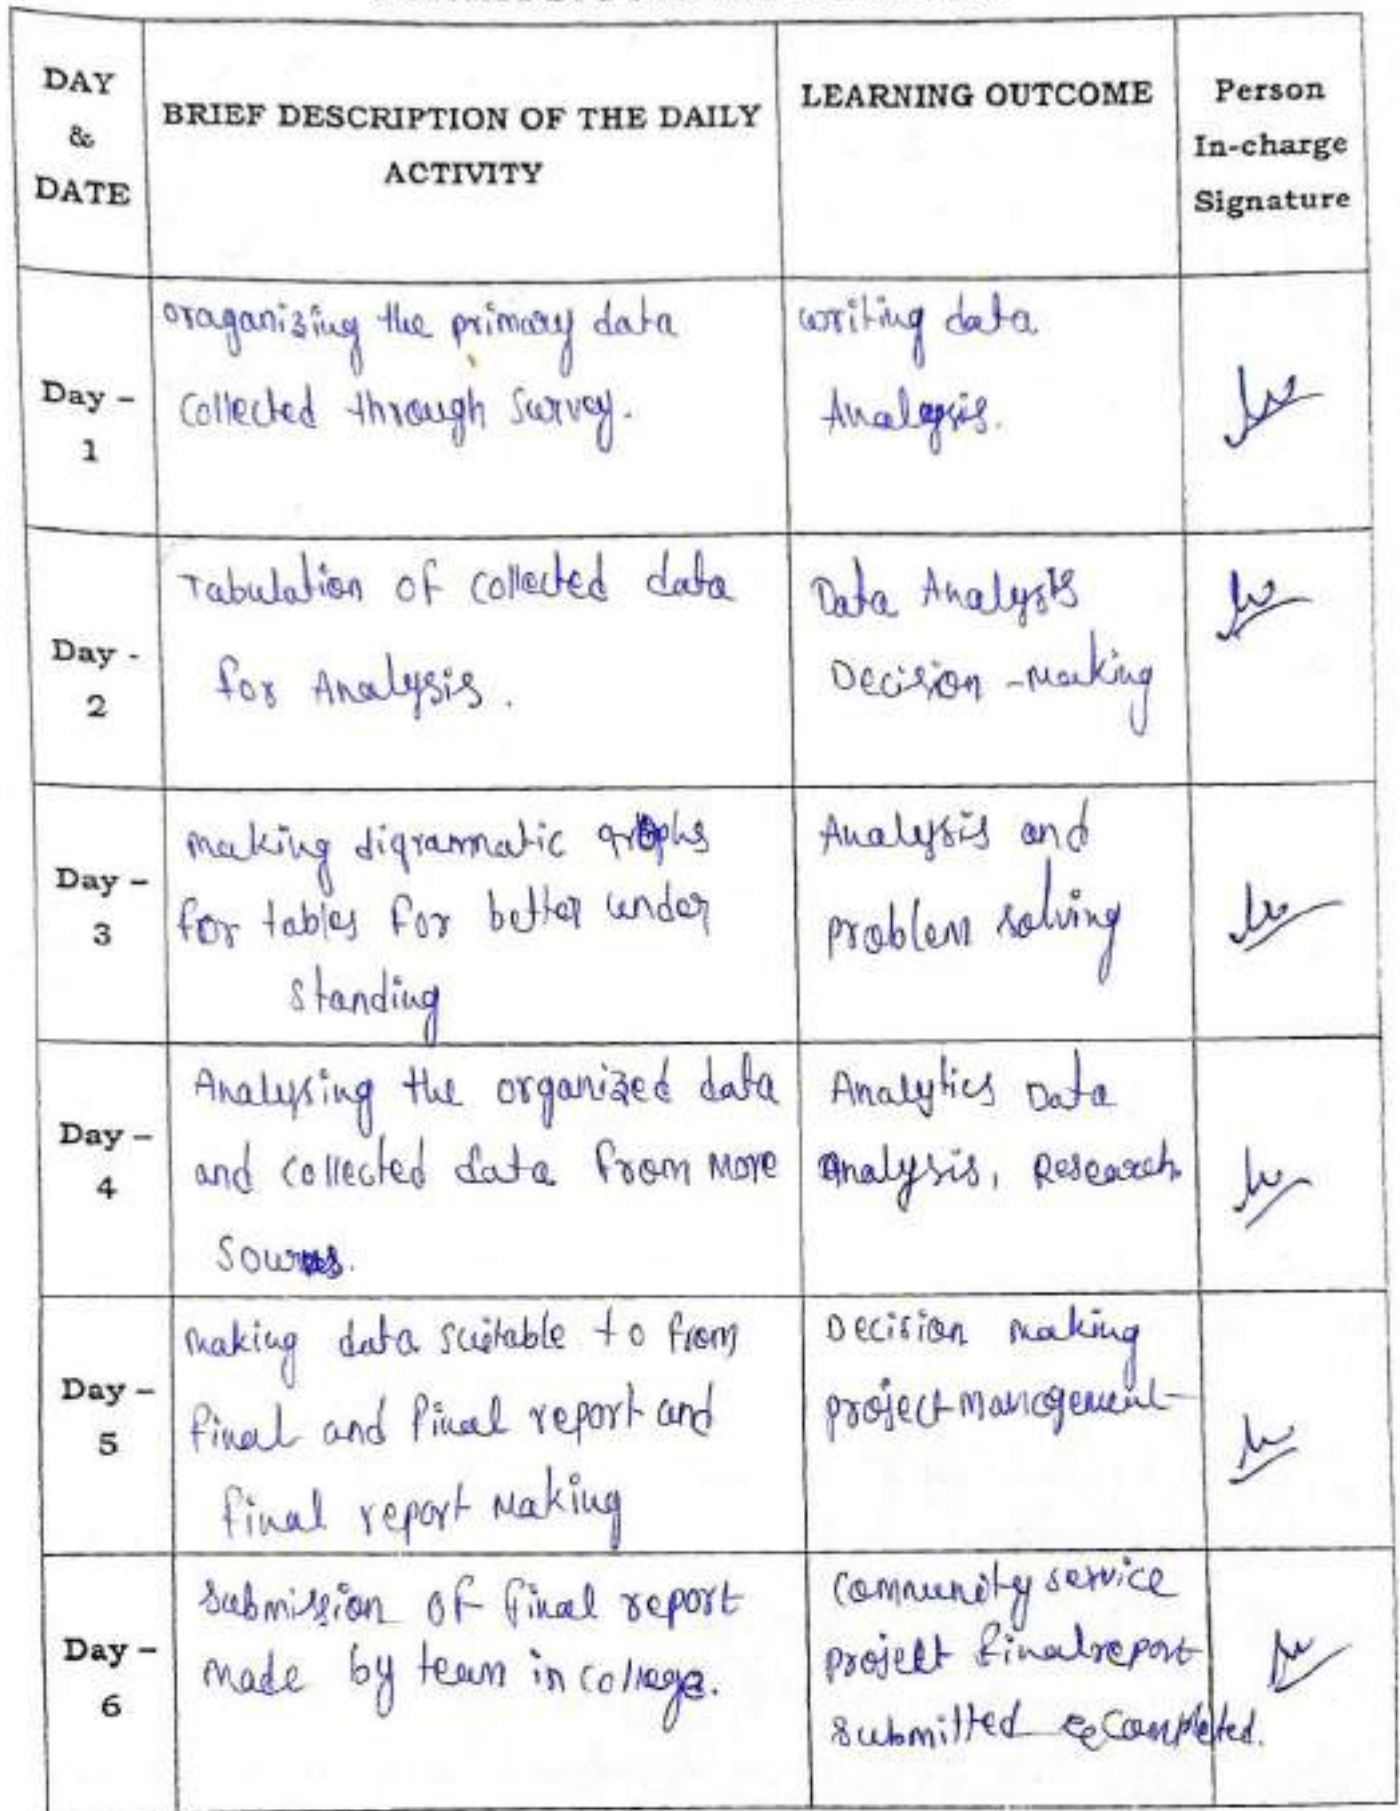 DAY
&
DATE
BRIEF DESCRIPTION OF THE DAILY
ACTIVITY
LEARNING OUTCOME
Person
In-charge
Signature
Day –
1
oraganizing the primary data
collected through survey.
writing data
Analysis.
Day -
2
Tabulation of collected data
for Analysis.
Data Analysis
Decision -Making
Day –
3
making digrammatic graphs
for tables for better under
standing
Analysis and
problem solving
Day –
4
Analysing the organized data
and collected data from More
Analytics Data
Analysis, Research
Day –
5
making data suitable to from
final and final report and
final report Making
Decision making
project Management
Day –
6
submission of final report
made by team in college.
community service
project final report
submitted & Completed.